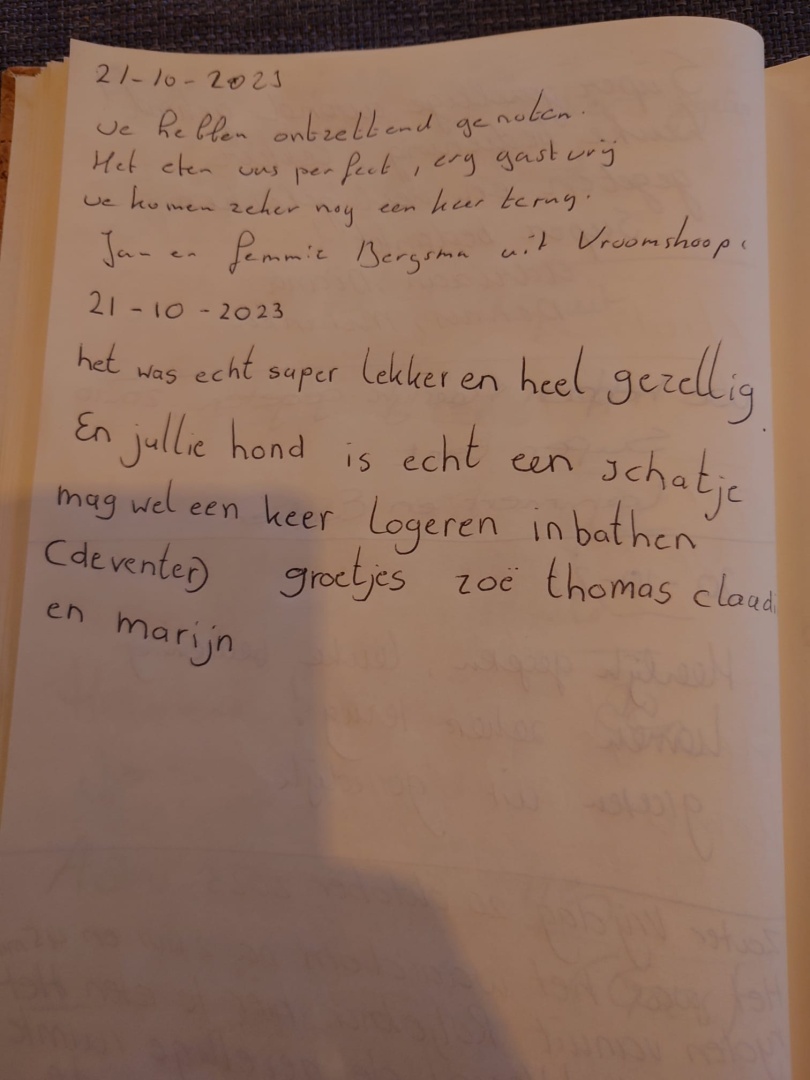 21-10-2023
We hebben ontzettend genoten.
Het eten was perfect, erg gastvrij
We komen zeker nog een keer terug.
Jan en Femmie Bergsma uit Vroomshoop.
21-10-2023
het was echt super lekker en heel gezellig.
En jullie hond is echt een schatje
mag wel een keer logeren in bathen
(deventer) groetjes zoë thomas claud
en marijn